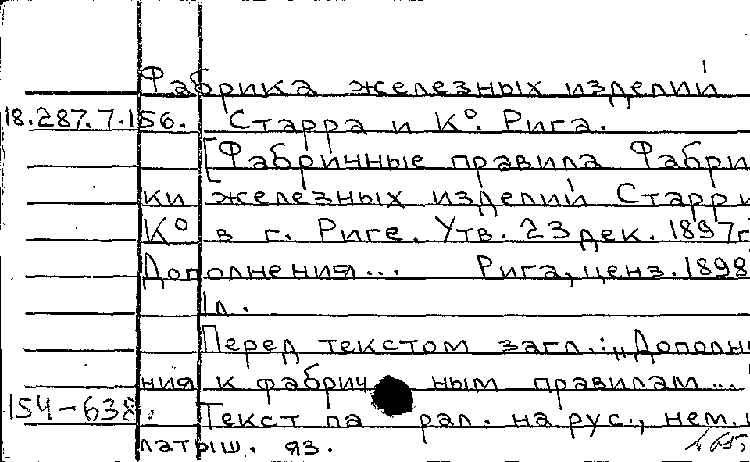 Фабрика железных изделий
18.287.7.156. Старра и Кº. Рига.
[Фабричные правила Фабри
ки железных изделий Старр и
Кº в г. Риге. Утв. 23 дек. 1897г
Дополнения... Рига, ценз. 1898
1л.
Перед текстом загл.: „Дополне
ния к фабричным правилам...
154-638. Текст парал. на рус., нем. и
латыш. яз.